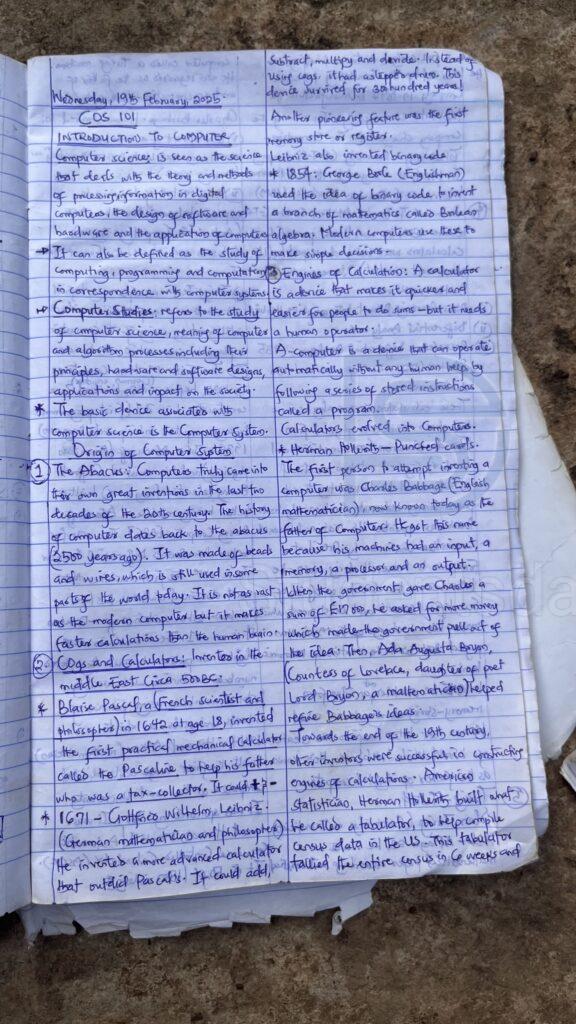 Wednesday, 19th February, 2025.
COS 101
INTRODUCTION TO COMPUTER
Computer science is seen as the science
that deals with the theory and methods
of processing information in digital
computers, the design of software and
hardware and the application of computers
→ It can also be defined as the study of
computing, programming and computation
in correspondence with computer systems
→ Computer Studies: refers to the study
of computer science, meaning of computer
and algorithm processes including their
principles, hardware and software designs,
applications and impact on the society.
* The basic device associated with
computer science is the Computer System.
Origin of Computer System
1 The Abacus: Computers truly came into
their own great inventions in the last two
decades of the 20th century. The history
of computer dates back to the abacus
(2500 years ago). It was made of beads
and wires, which is still used in some
parts of the world today. It is not as vast
as the modern computer but it makes
faster calculations than the human brain.
2. Cogs and Calculators: Invented in the
middle East Circa 500BC.
* Blaise Pascal, a (French scientist and
philosopher) in 1642 at age 18, invented
the first practical mechanical calculator
called the Pascaline to help his father
who was a tax-collector. It could +,-
* 1671 - Gottfried Wilhelm, Leibniz.
(German mathematician and philosopher)
He invented a more advanced calculator
that outdid Pascal's. It could add,
Subtract, multiply and divide. Instead of
using cogs, it had a stepped drum. This
device survived for 300 hundred years!
Another pioneering feature was the first
memory store or register.
Leibniz also invented binary code
* 1854: George Boole (Englishman)
used the idea of binary code to invent
a branch of mathematics called Boolean
algebra. Modern computers use these to
make simple decisions.
3 Engines of Calculation: A calculator
is a device that makes it quicker and
easier for people to do sums - but it needs
a human operator.
A computer is a device that can operate
automatically without any human help by
following a series of stored instructions
called a program.
Calculators evolved into Computers.
* Herman Hollerith - Punched cards.
The first person to attempt inventing a
computer was Charles Babbage (English
mathematician), now known today as the
father of Computer. He got this name
because his machines had an input, a
memory, a processor, and an output.
When the government gave Charles a
sum of £1700, he asked for more money
which made the government pull out of
the idea. Then, Ada Augusta Bryon,
(Countess of Lovelace, daughter of poet
Lord Bryon, a mathematician) helped
refine Babbage's ideas.
Towards the end of the 19th century,
other inventors were successful in constructing
engines of calculations. American
statistician, Herman Hollerith built what
he called a tabulator, to help compile
census data in the US. This tabulator
tallied the entire census in 6 weeks and